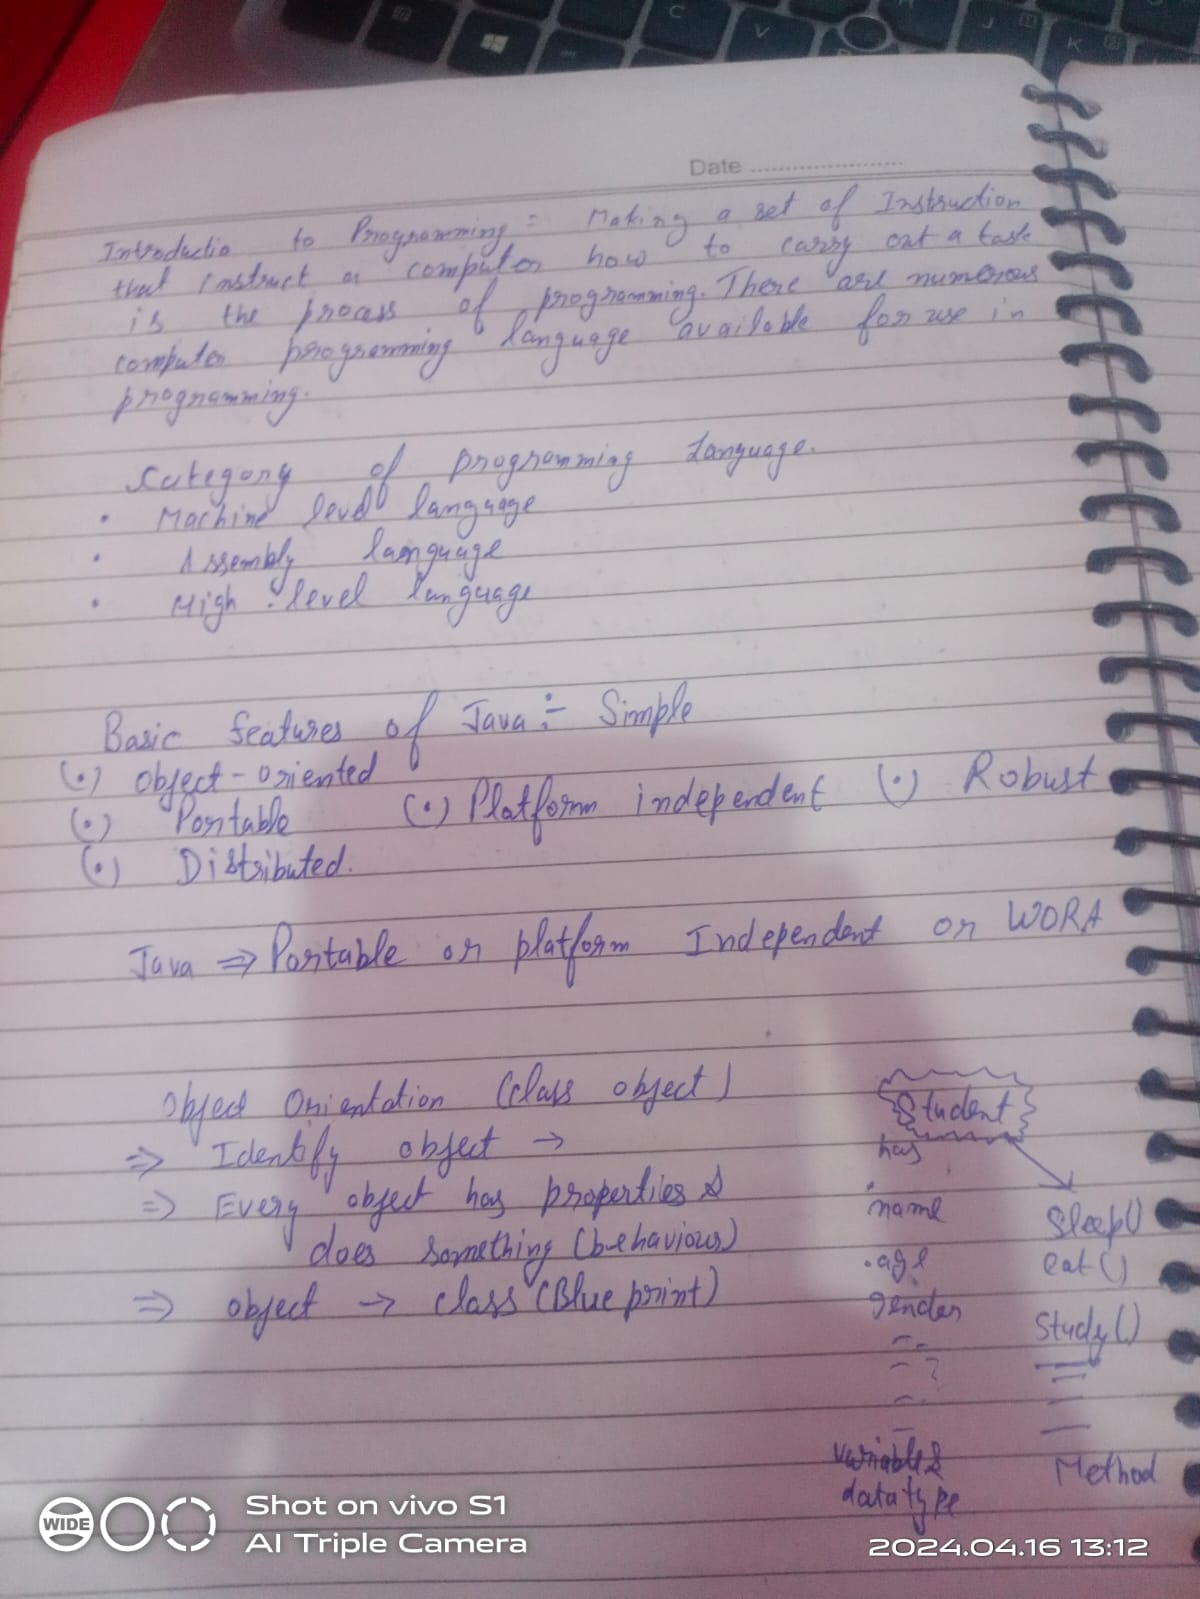 Date
Introductio to Programming :- Making a set of Instruction
that instruct a computer how to carry out a task
is the process of programming. There are numerous
computer programming language available for use in
programming.
Category of programming Language.
• Machine level language
• Assembly language
• High-level language
Basic features of Java :- Simple
(•) object-oriented
(•) Portable (•) Platform independent (•) Robust
(•) Distributed.
Java ⇒ Portable or platform Independent or WORA
Object Orientation (class object)
Student
⇒ Identify object →
has
⇒ Every object has properties &
• name Sleep()
does something (behaviour)
• age eat()
⇒ object → class (Blue print)
gender
Study()
variable &
data type
Method
WIDE
Shot on vivo S1
AI Triple Camera
2024.04.16 13:12